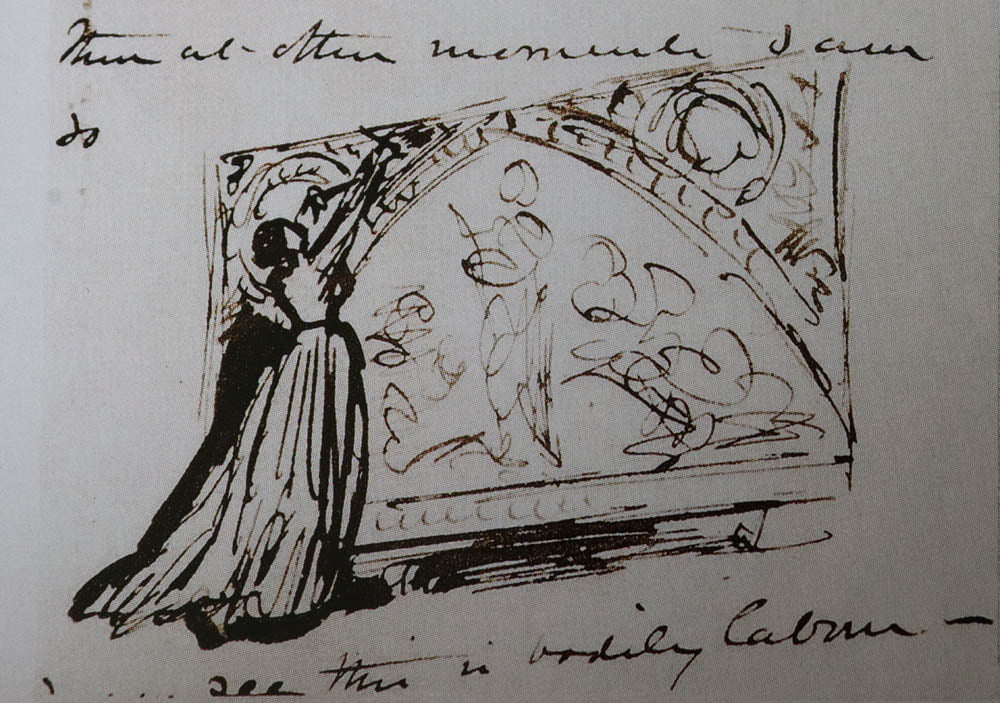 Then at other moments I am
so
see this is bodily labour —